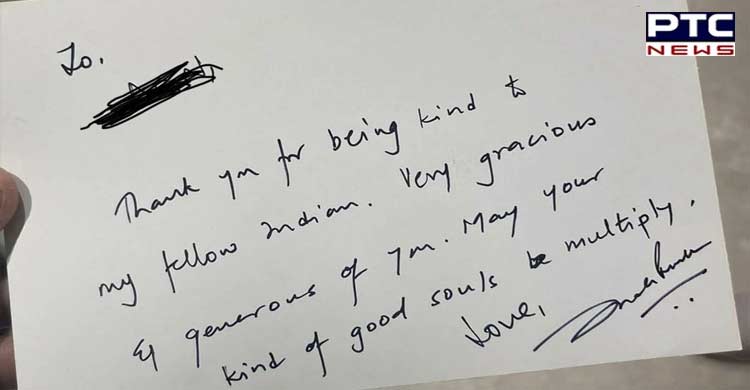 PTC
NEWS
To,
Thank you for being kind to
my fellow Indian. Very gracious
& generous of you. May your
kind of good souls multiply.
Love,